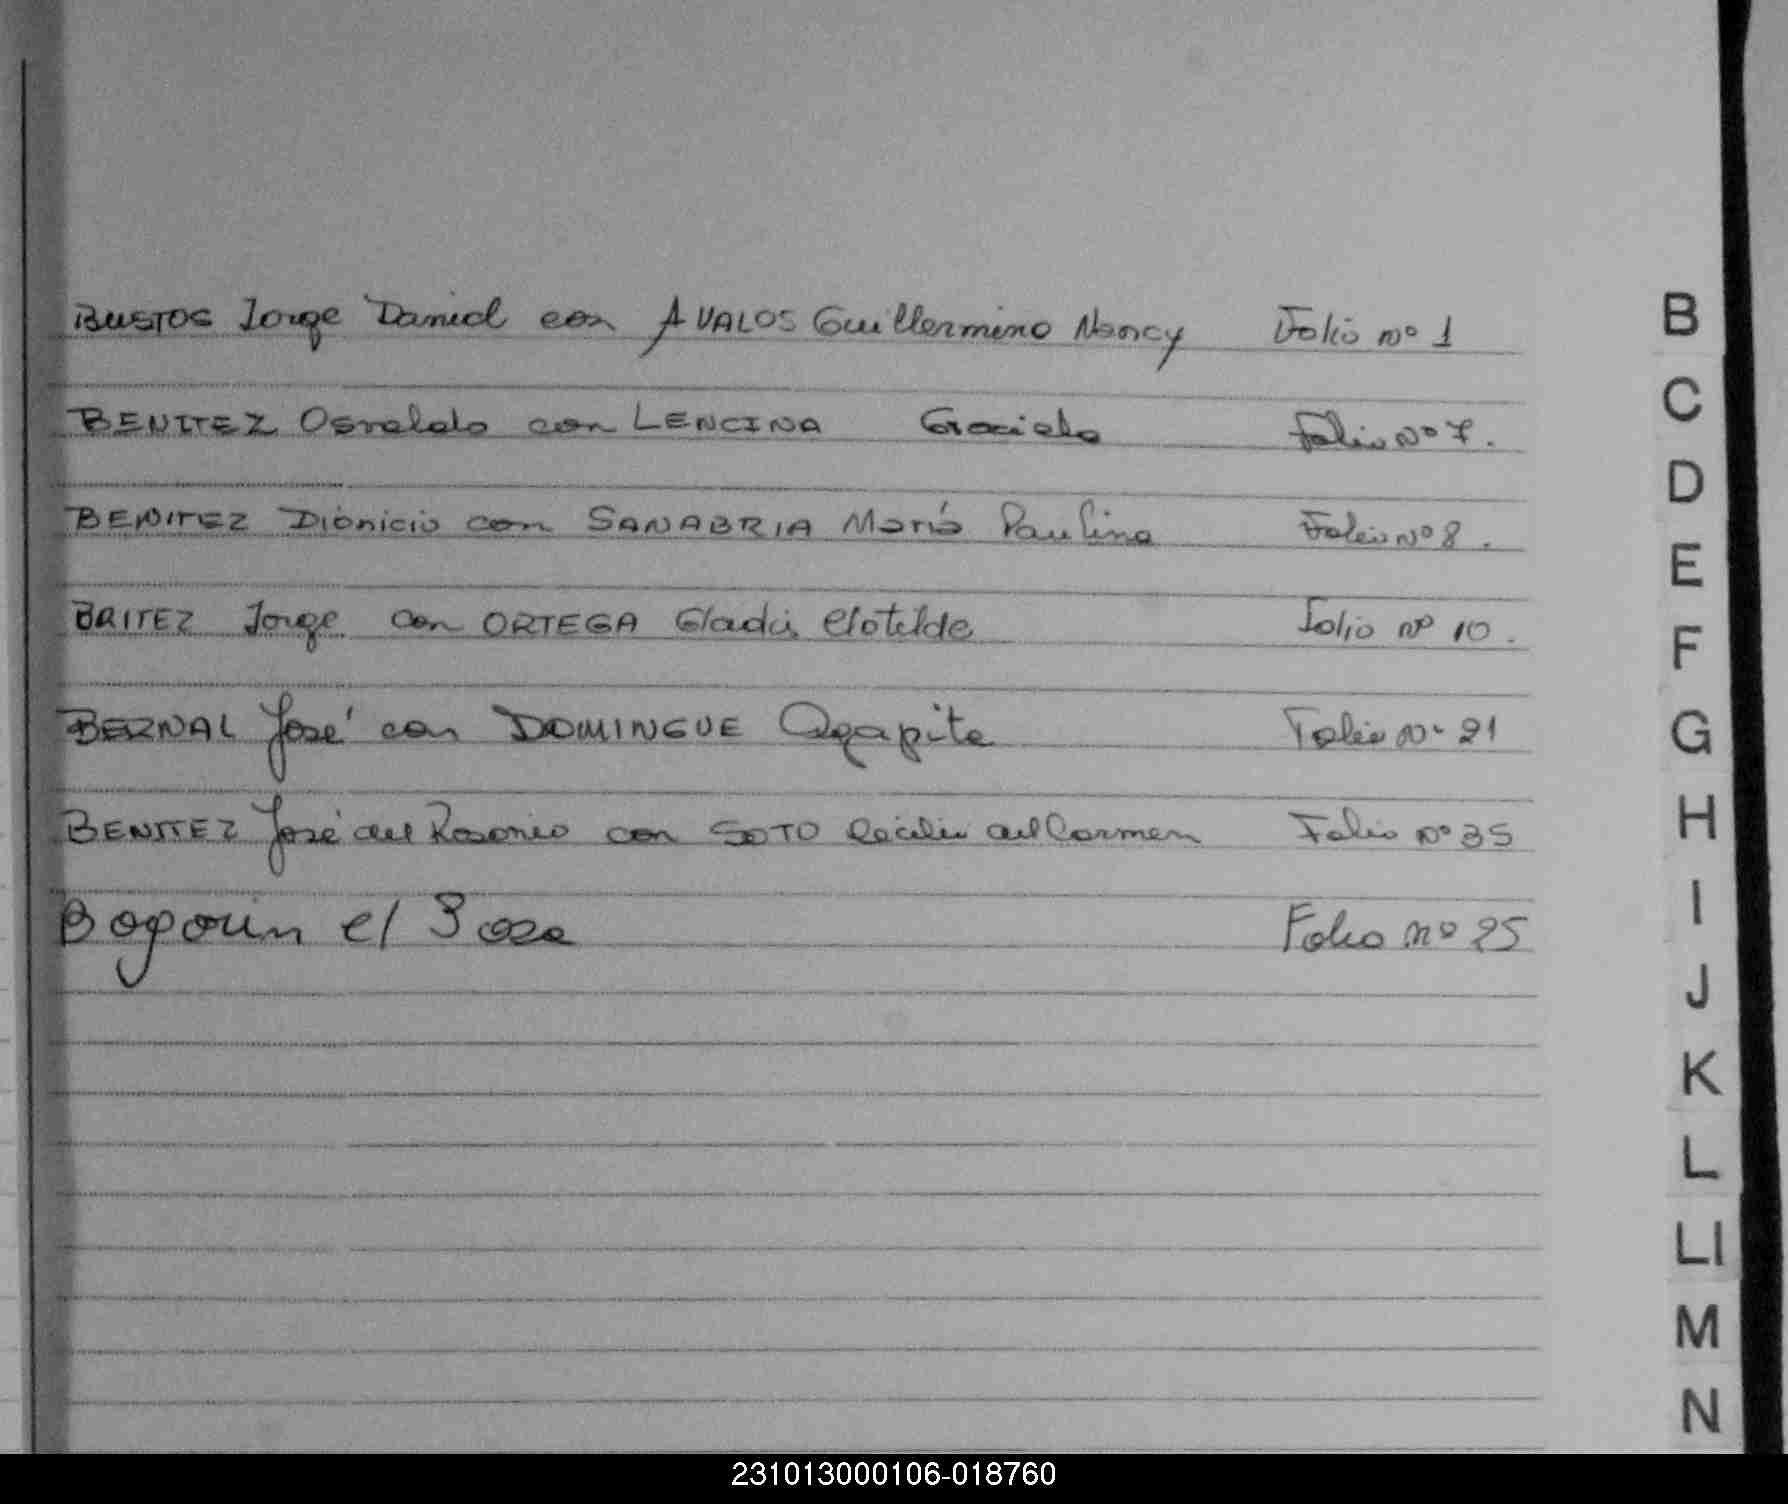 BUSTOS Jorge Daniel con AVALOS Guillermina Nancy Folio nº 1
BENITEZ Osvaldo con LENCINA Graciela Folio Nº 7.
BENITEZ Dionicio con SANABRIA María Paulina Folio Nº 8.
BRITEZ Jorge con ORTEGA Gladis Clotilde Folio nº 10.
BERNAL José con DOMINGUE Agapita Folio Nº 21
BENITEZ José del Rosario con SOTO Cecilia del Carmen Folio Nº 35
Bogarin c/ Sosa Folio nº 25
B
C
D
E
F
G
H
I
J
K
L
Ll
M
N
231013000106-018760